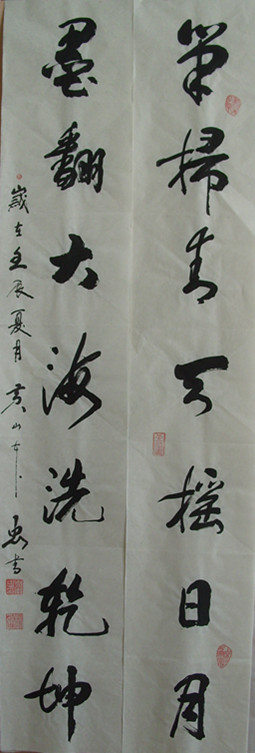 筆掃青天搖日月
墨翻大海洗乾坤
歲在壬辰夏月黃山
書